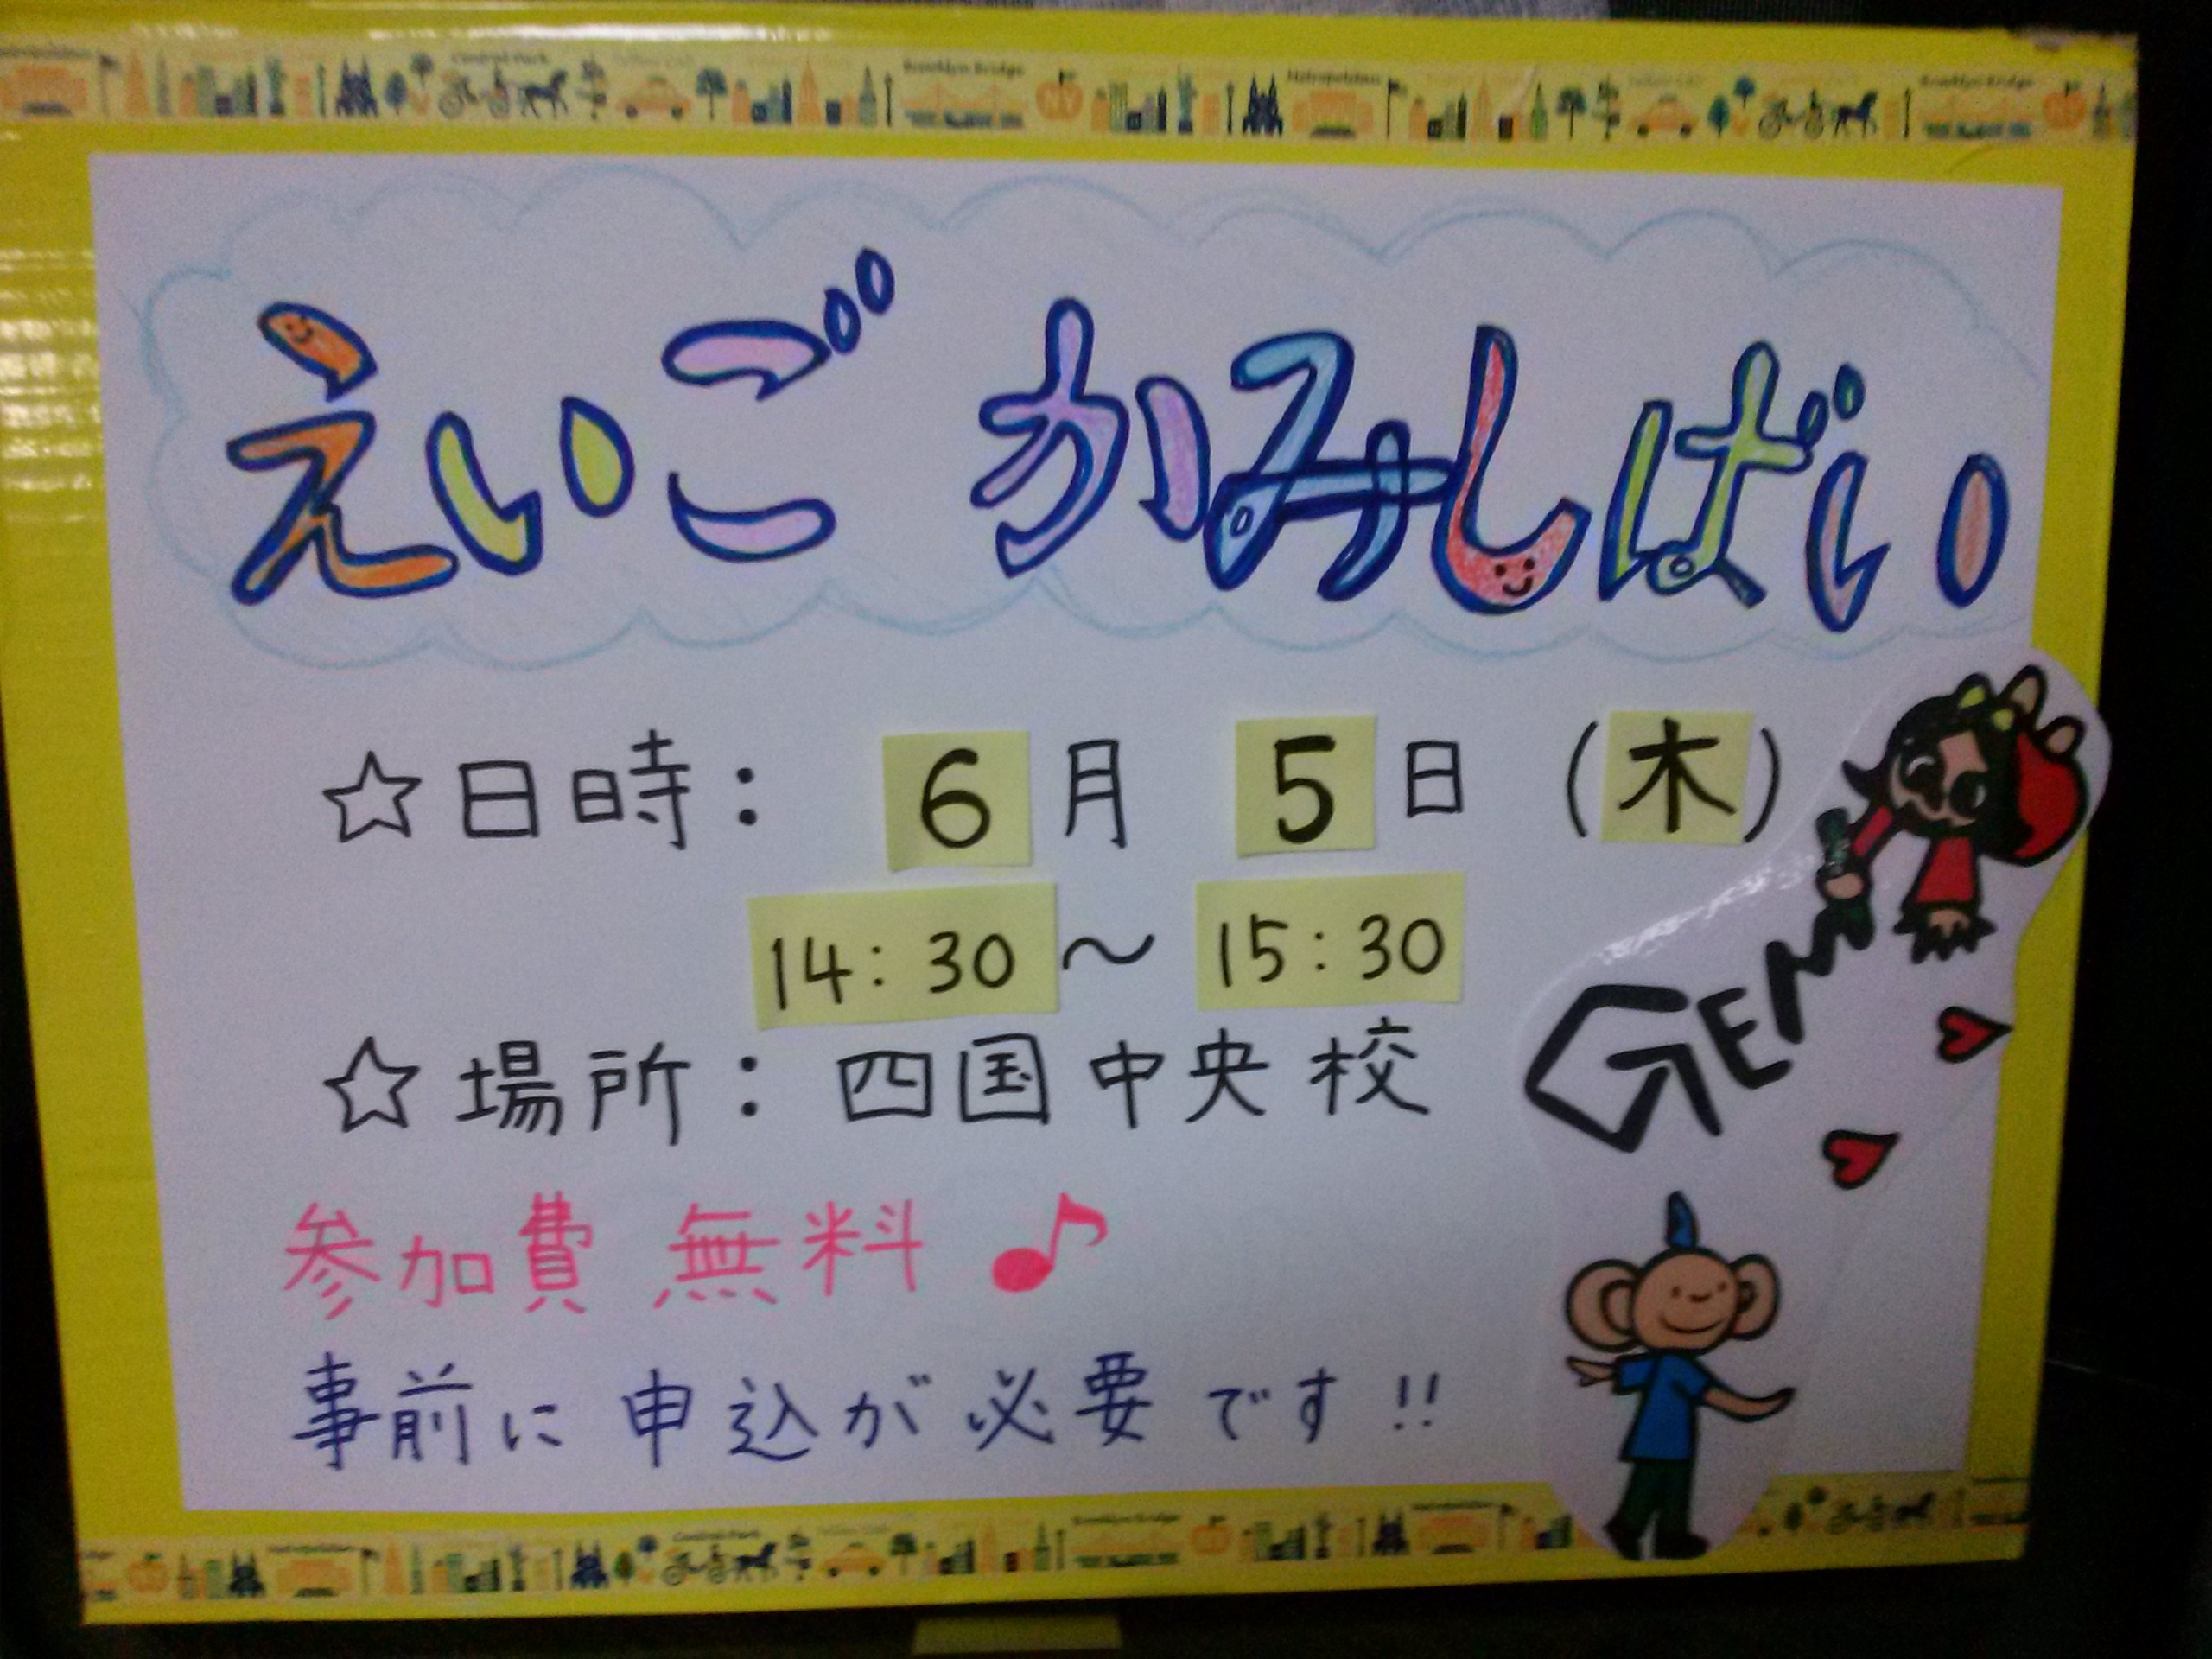 えいご かみしばい
☆日時： 6月 5日（木）
14:30～15:30
☆場所：四国中央校
GEM
参加費 無料♪
事前に申込が必要です!!
Central Park
Brooklyn Bridge
NY
Metropolitan
Brooklyn Bridge
Central Park
Brooklyn Bridge